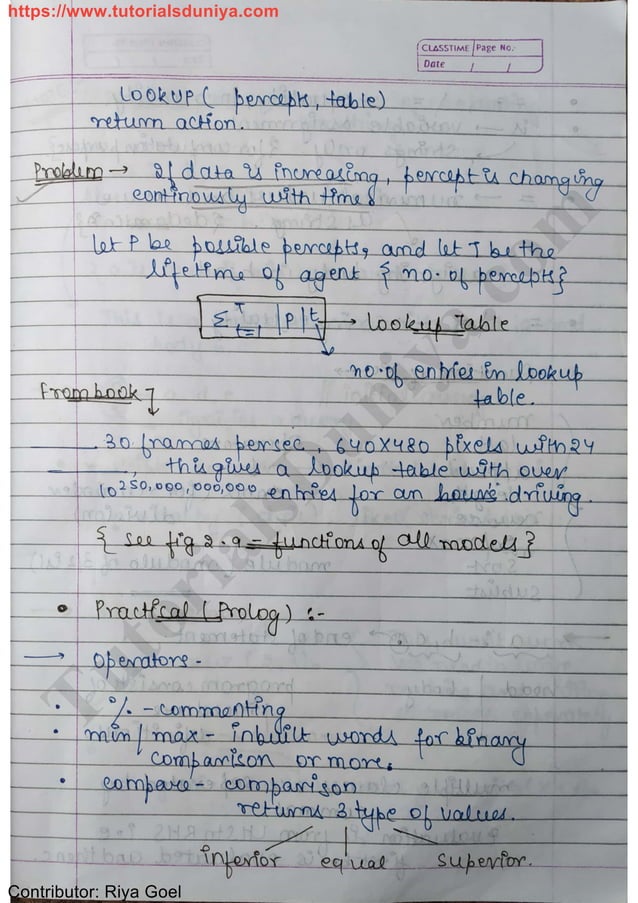 https://www.tutorialsduniya.com
CLASSTIME Page No.
Date / /
LOOKUP( percepts, table)
return action.
Problem → If data is increasing, percept is changing
continously with time.
let P be possible percepts, and let T be the
lifetime of agent { no. of percepts}
Σ T t=1 |P|t → Lookup Table
no. of entries in lookup
table.
From book ↓
30 frames per sec, 640X480 pixels with 24
, this gives a lookup table with over
10^250,000,000,000 entries for an hours driving.
{ see fig 2.9 = functions of all models}
• Practical (Prolog) :-
→ Operators -
• % - commenting
• min/max - inbuilt words for binary
comparison or more.
• compare - comparison
returns 3 type of values.
inferior equal superior.
TutorialsDuniya.com
Contributor: Riya Goel